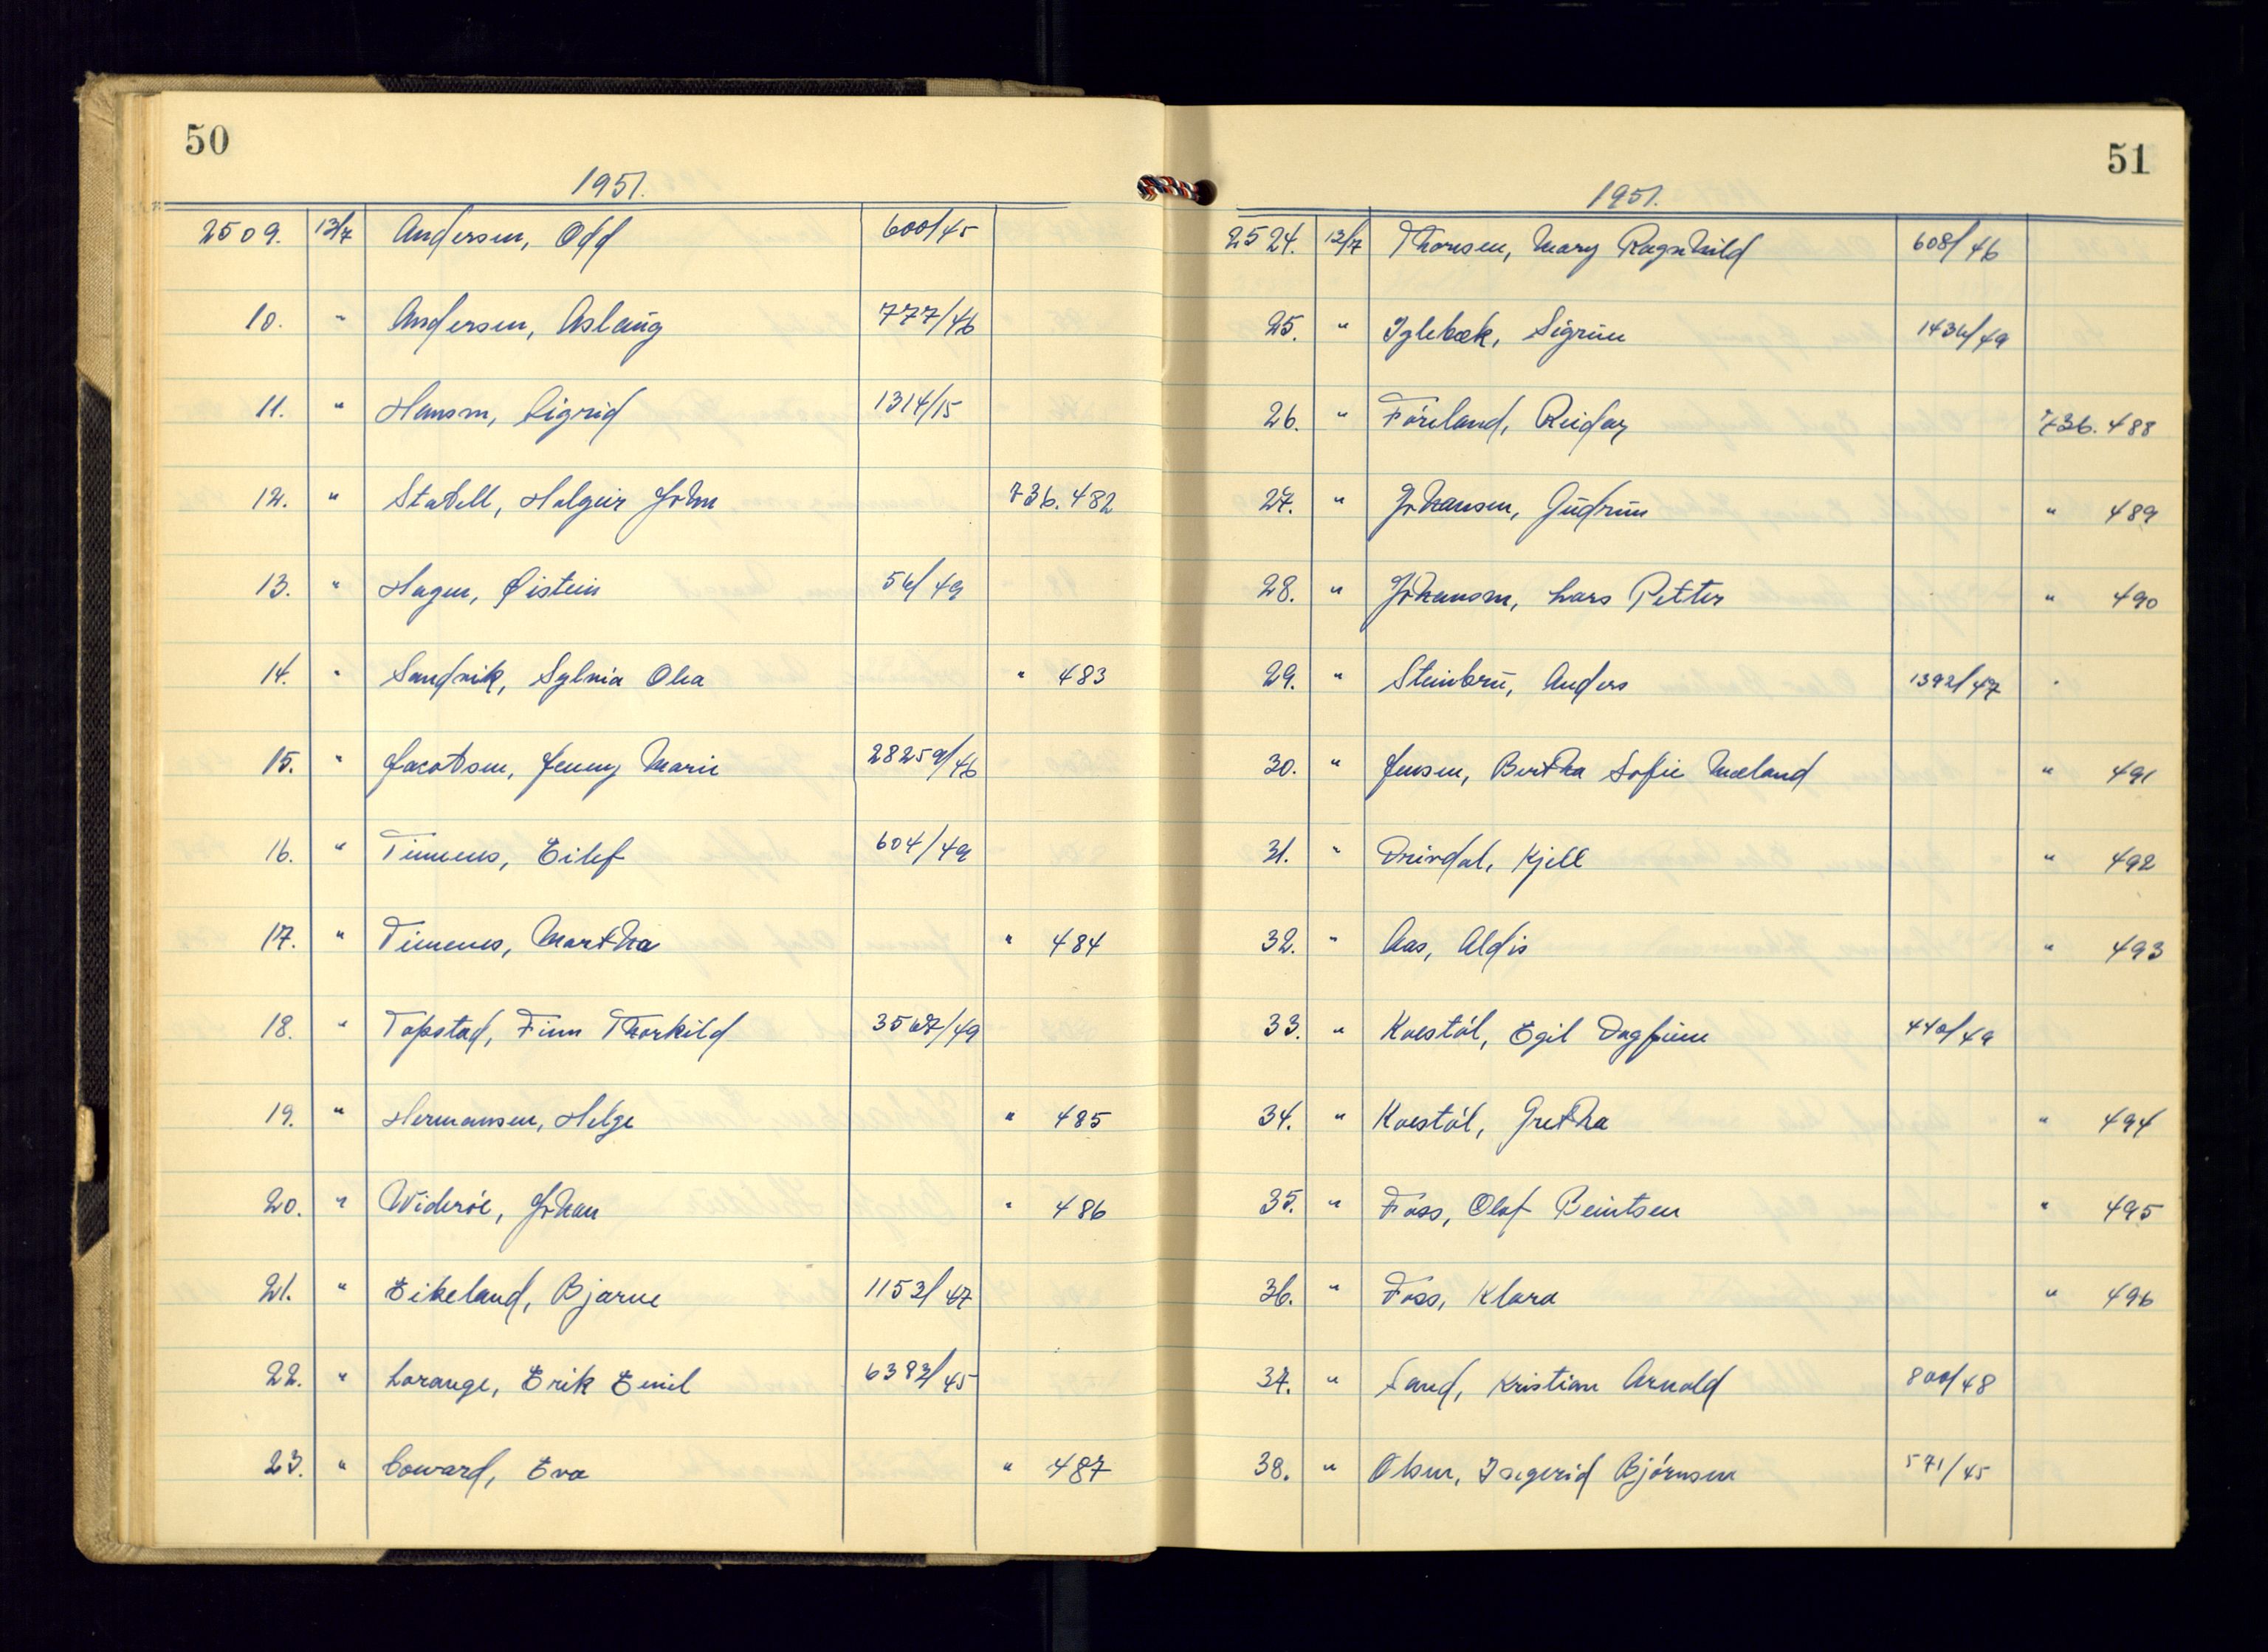 50
1951.
2509. 13/7 Andersen, Odd 600/45
10. " Andersen, Aslaug 777/46
11. " Hansen, Sigrid 1314/15
12. " Stabell, Holgeir John 736.482
13. " Hagen, Øistein 56/49
14. " Sandvik, Sylvia Olea " 483
15. " Jacobsen, Jenny Marie 28259/46
16. " Timenes, Eilef 604/49
17. " Timenes, Martha " 484
18. " Topstad, Finn Thorkild 3567/49
19. " Hermansen, Helge " 485
20. " Widerøe, Johan " 486
21. " Eikeland, Bjarne 1153/47
22. " Lorange, Erik Emil 6383/45
23. " Coward, Eva " 487
51
1951.
2524. 13/7 Thorsen, Mary Ragnhild 608/46
25. " Iglebæk, Sigrun 1436/49
26. " Føreland, Reidar 736.488
27. " Johansen, Gudrun " 489
28. " Johansen, Lars Petter " 490
29. " Steinbru, Anders 1392/47
30. " Jensen, Bertha Sofie Mæland " 491
31. " Drivdal, Kjell " 492
32. " Aas, Aldis " 493
33. " Kvestøl, Egil Dagfinn 440/49
34. " Kvestøl, Grethe " 494
35. " Foss, Olaf Beintsen " 495
36. " Foss, Klara " 496
37. " Sand, Kristian Arnold 800/48
38. " Olsen, Ingerid Bjørnsen 571/45